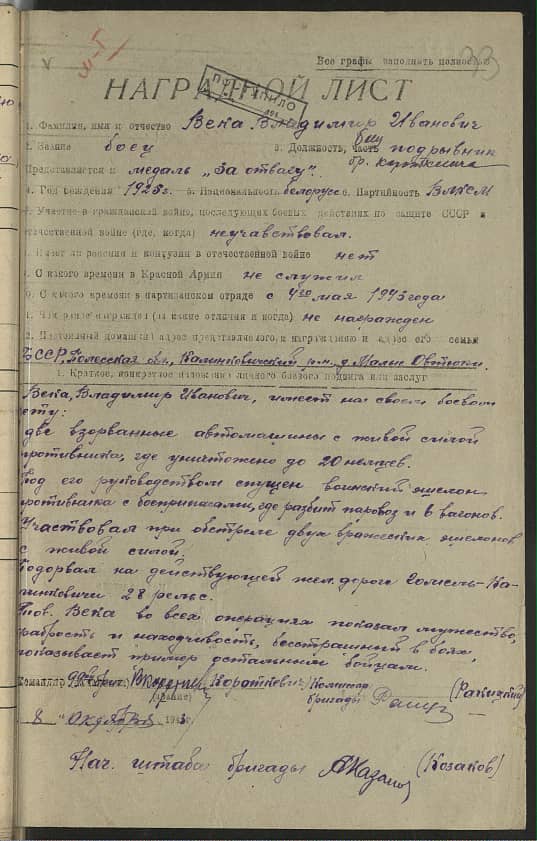 Все графы заполнять полностью
33
НАГРАДНОЙ ЛИСТ
1. Фамилия, имя и отчество Века Владимир Иванович
2. Звание боец 3. Должность, часть подрывник
бр.
Представляется к медаль „За отвагу".
4. Год рождения 1925 г. 5. Национальность белорусс 6. Партийность ВЛКСМ
7. Участие в гражданской войне, последующих боевых действиях по защите СССР и
отечественной войне (где, когда) неучавствовал.
8. Имеет ли ранения и контузии в отечественной войне нет
9. С какого времени в Красной Армии не служил
10. С какого времени в партизанском отряде с 4го мая 1943 года
11. Чем ранее награжден (за какие отличия и когда) не награжден
12. Постоянный домашний адрес представляемого к награждению и адрес его семьи
БССР, Полесская обл, Калинковичский р-н. д. Малые Овтюки.
1. Краткое, конкретное изложение личного боевого подвига или заслуг
Века, Владимир Иванович, имеет на своем боевом
счету:
две взорванные автомашины с живой силой
противника, где уничтожено до 20 немцев.
Под его руководством спущен воинский эшелон
противника с боеприпасами, где разбит паровоз и 6 вагонов.
Участвовал при обстреле двух вражеских эшелонов
с живой силой.
Подорвал на действующей жел. дороге Гомель-Ка-
линковичи 28 рельс.
Тов. Века во всех операциях показал мужество,
храбрость и находчивость, бесстрашный в боях,
показывает пример остальным бойцам.
Командир (Короткевич) Комиссар
бригады (Ракицкий)
(звание)
8 " Октября 1943 г
Нач. штаба бригады (Козаков)